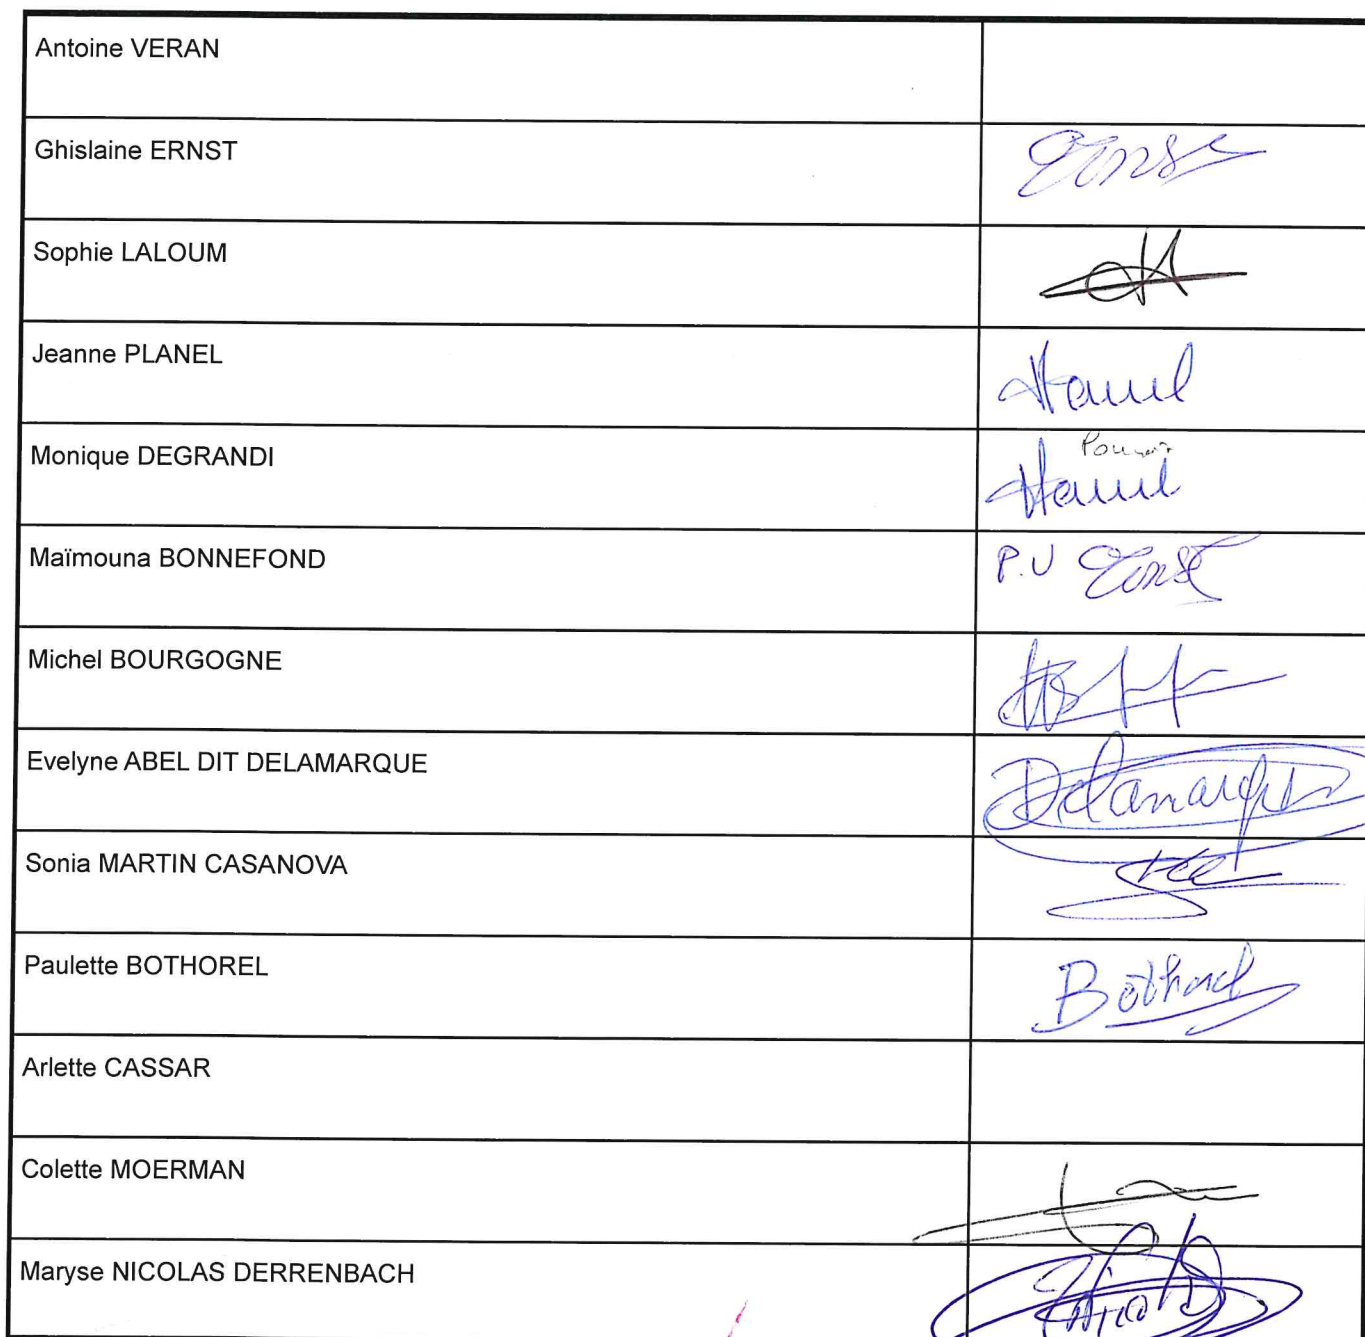 Antoine VERAN
Ghislaine ERNST
Ernst
Sophie LALOUM
Jeanne PLANEL
Monique DEGRANDI
Pouvoir
Maïmouna BONNEFOND
P.U Ernst
Michel BOURGOGNE
Evelyne ABEL DIT DELAMARQUE
Delamarque
Sonia MARTIN CASANOVA
Paulette BOTHOREL
Bothorel
Arlette CASSAR
Colette MOERMAN
Maryse NICOLAS DERRENBACH